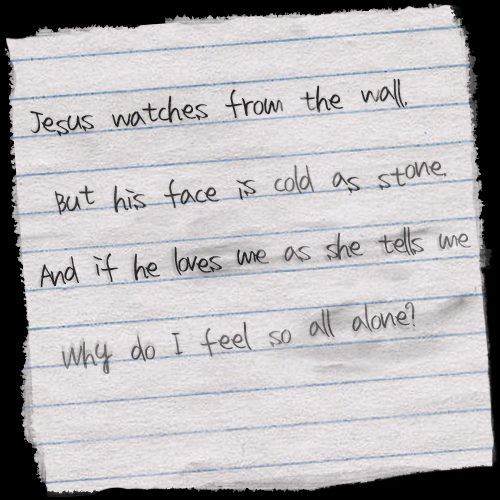 Jesus watches from the wall,
But his face is cold as stone,
And if he loves me as she tells me
Why do I feel so all alone?